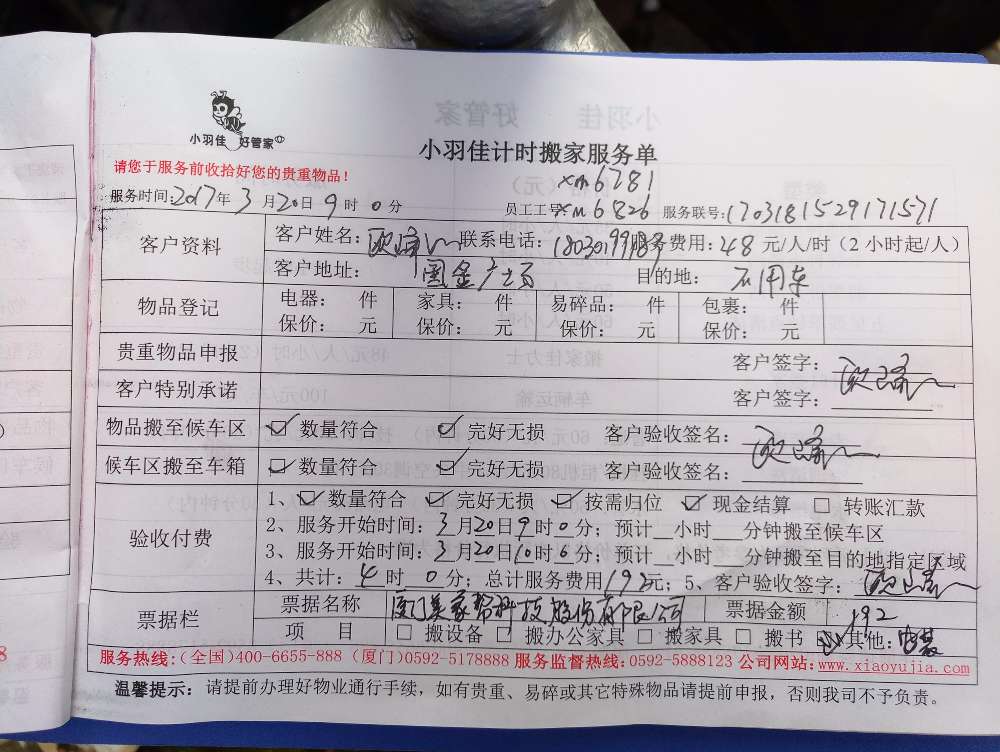 小羽佳 好管家
小羽佳计时搬家服务单
请您于服务前收拾好您的贵重物品！
xm6781
服务时间:2017年3月20日9时0分 员工工号:xm6826 服务联号:1703181529171571
客户资料 客户姓名: 联系电话: 服务费用:48元/人/时（2小时起/人）
客户地址: 国金广场 目的地: 不用车
物品登记 电器: 件 家具: 件 易碎品: 件 包裹: 件
保价: 元 保价: 元 保价: 元 保价: 元
贵重物品申报 客户签字:
客户特别承诺 客户签字:
物品搬至候车区 ☑数量符合 ☑完好无损 客户验收签名:
候车区搬至车箱 ☑数量符合 ☑完好无损 客户验收签名:
验收付费 1、☑数量符合 ☑完好无损 ☑按需归位 ☑现金结算 □转账汇款
2、服务开始时间:3月20日9时0分；预计__小时__分钟搬至候车区
3、服务开始时间:3月20日10时6分；预计__小时__分钟搬至目的地指定区域
4、共计:4时0分；总计服务费用192元；5、客户验收签字:
票据栏 票据名称 厦门美家帮科技股份有限公司 票据金额 192
项目 □搬设备 □搬办公家具 □搬家具 □搬书 ☑其他:
服务热线:(全国)400-6655-888 (厦门)0592-5178888 服务监督热线:0592-5888123 公司网站:www.xiaoyujia.com
温馨提示：请提前办理好物业通行手续，如有贵重、易碎或其它特殊物品请提前申报，否则我司不予负责。